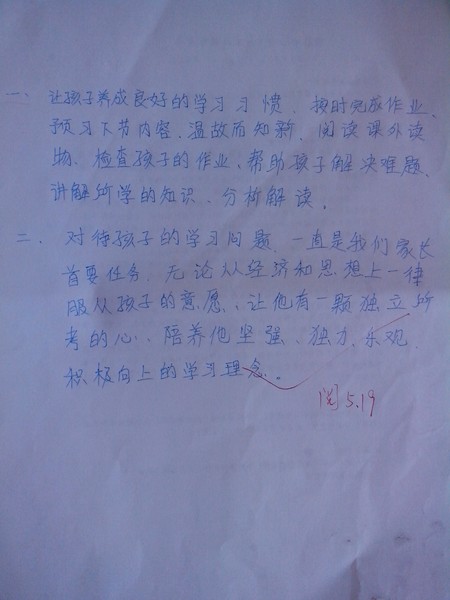 一、让孩子养成良好的学习习惯、按时完成作业、
预习下节内容、温故而知新、阅读课外读
物、检查孩子的作业、帮助孩子解决难题、
讲解所学的知识、分析解读。
二、对待孩子的学习问题、一直是我们家长
首要任务、无论从经济和思想上一律
服从孩子的意愿、让他有一颗独立所
考的心、陪养他坚强、独力、乐观、
积极向上的学习理念。
阅 5.19